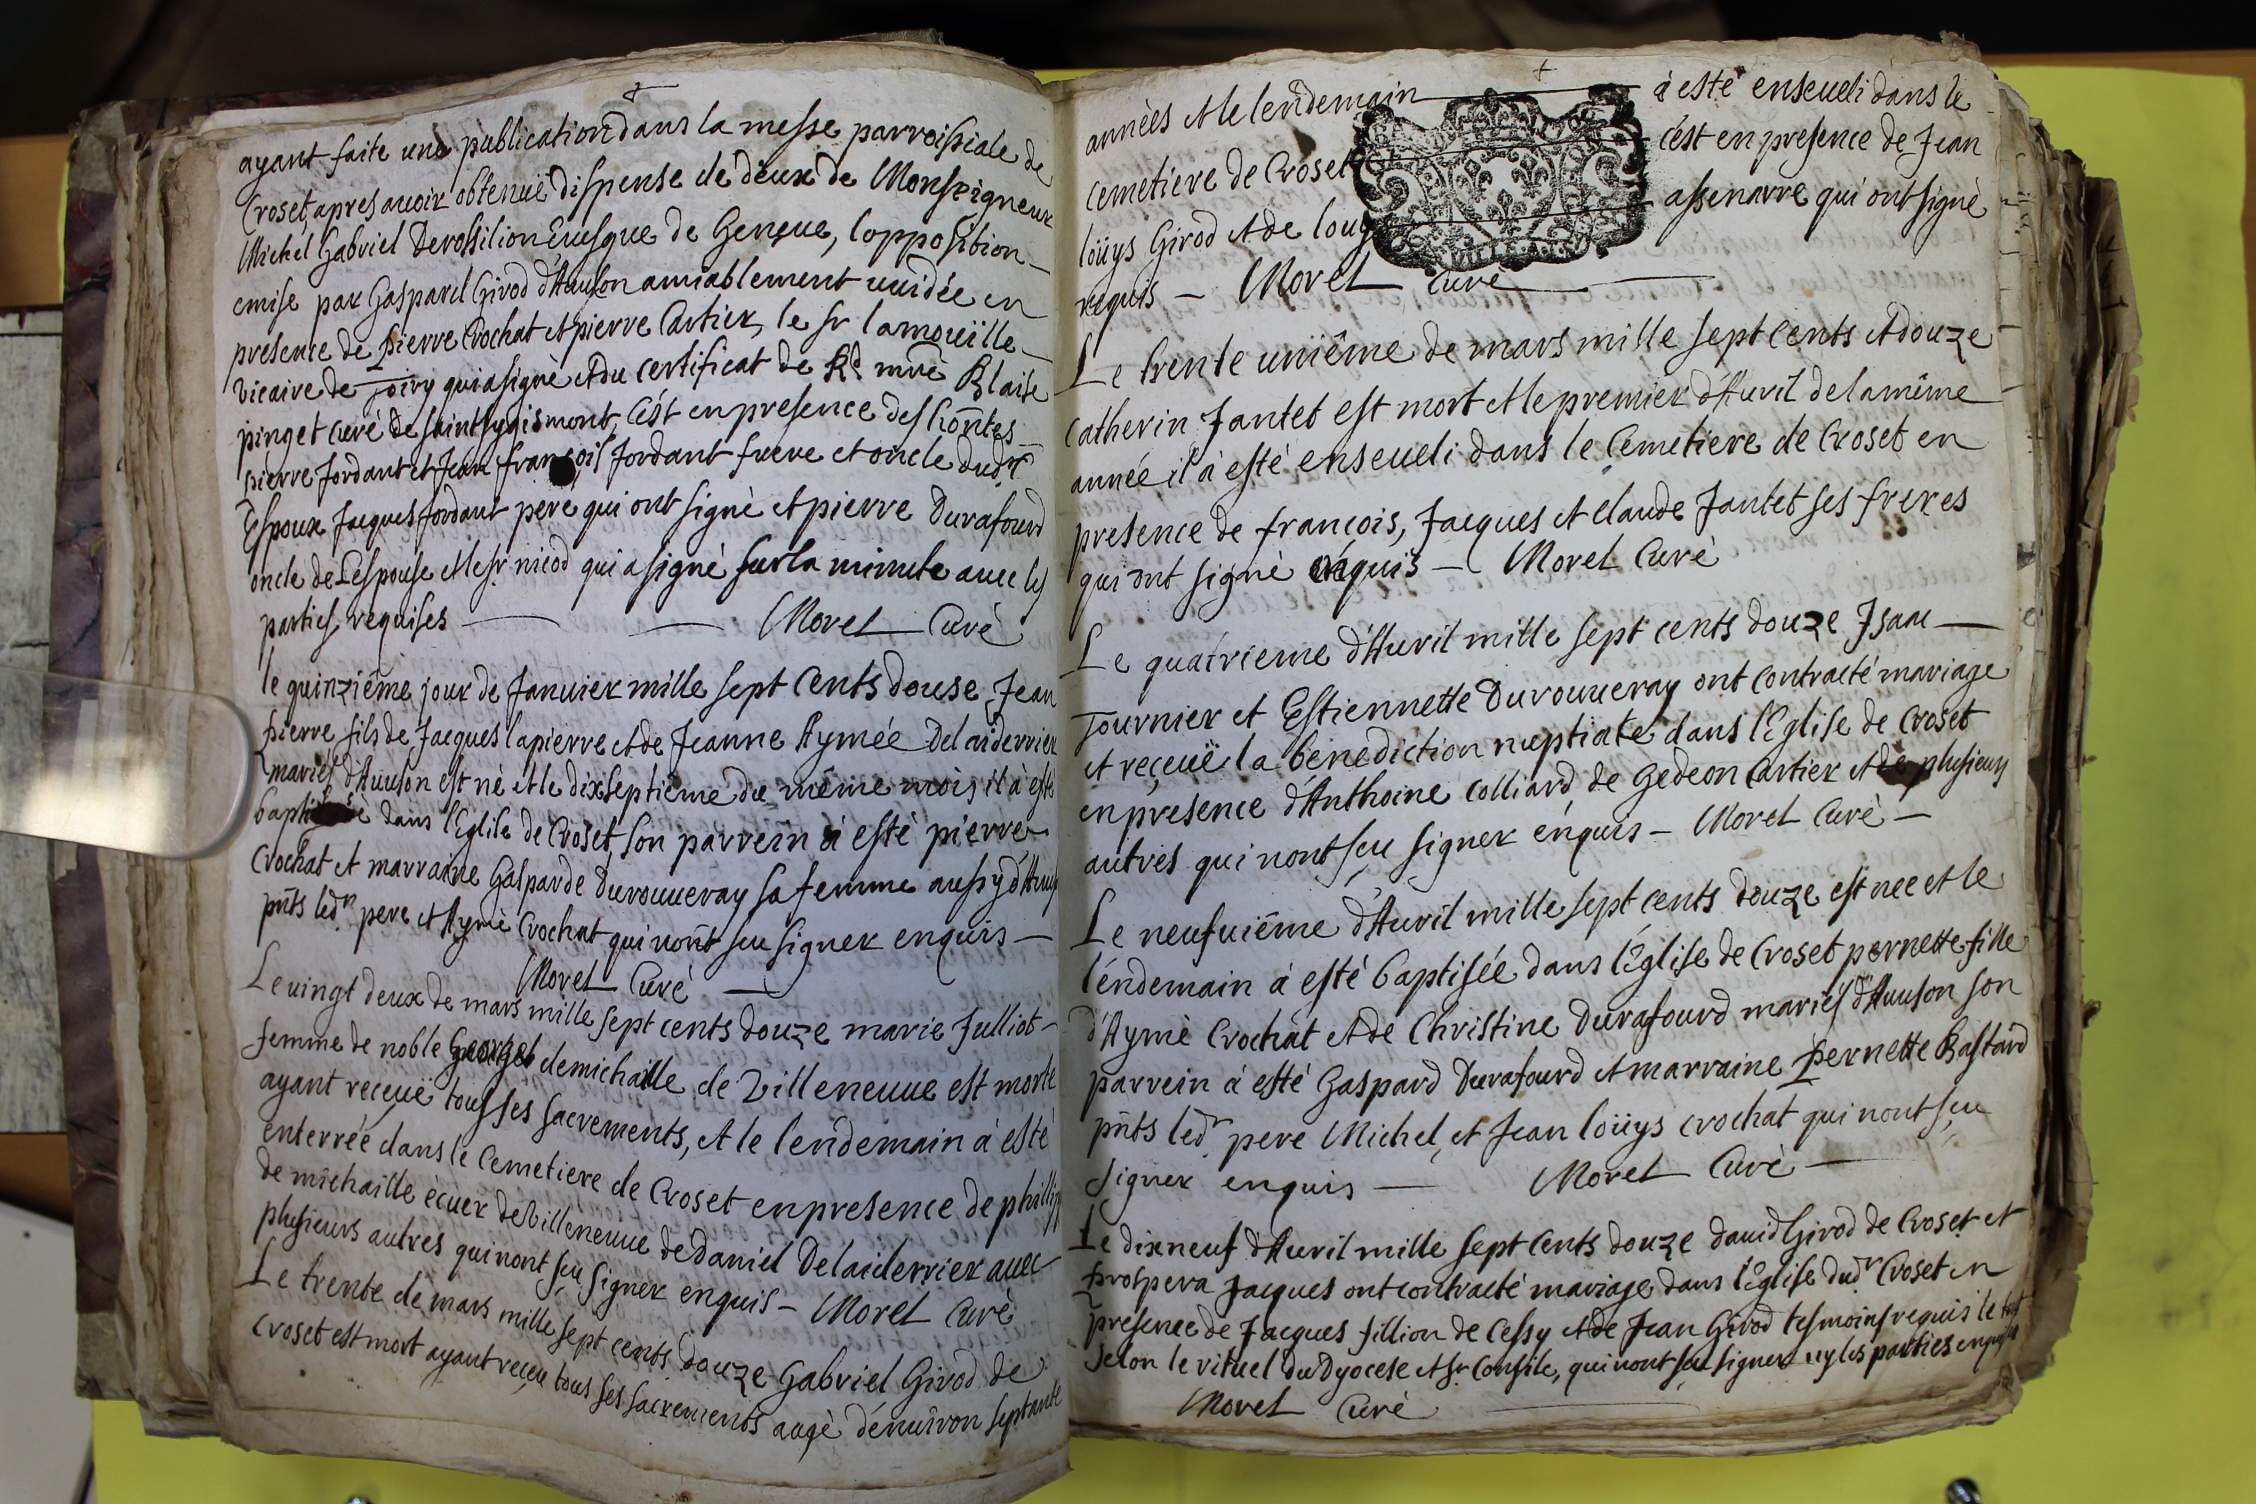 ayant faite une publication dans la messe parroissiale de
Croset, apres auoir obtenuë dispense de deux de Monseigneur
Michel Gabriel Derossilion Euesque de Geneue, lopposition
emise par Gaspard Girod d'Auuson amiablement uuidée en
presence de pierre Crochat et pierre Cartier, le sr lamouille
Vicaire de Joiry qui a signè et du certificat de Rd mre Blaise
pinget curé de saint sygismont, c'ést en presence des hōn̄tes
pierre Jordant et Jean françois Jordant frere et oncle dudt
Espoux Jacques Jordant pere qui ont signè et pierre Durafourd
oncle de Lespouse et le sr nicod qui a signè sur la minute auec les
parties requises Morel Curè
le quinziéme jour de Januier mille sept Cents douse Jean
pierre fils de Jacques lapierre et de Jeanne Aymée Delaiderrier
mariés d'Auuson est nè et le dixseptiéme du même mois il à esté
dans l'Eglise de Croset, son parrein à esté pierre
Crochat et marraine Gasparde Durouueray sa femme aussy
pn̄ts ledt pere et Aymè Crochat qui nont sçu signer enquis
Morel Curè
Le uingt deux de mars mille sept cents douze marie Julliot
femme de noble George demichaille de Villeneuue est morte
ayant reçeuë tous ses sacrements, et le lendemain à esté
enterrée dans le Cemetiere de Croset en presence de
de michaille ècuer de Villeneuue de Daniel Delaiderrier auec
plusieurs autres qui nont sçu signer enquis - Morel Curè
Le trente de mars mille sept cents douze Gabriel Girod de
Croset est mort ayant reçeu tous ses sacrements aagè dénuiron septante
annèes et le lendemain à esté enseueli dans le
cemetiere de Croset c'ést en presence de Jean
loüys Girod et de assenarre qui ont signè
requis - Morel Curè
Le trente uniême de mars mille sept Cents et douze
Catherin Jantet est mort et le premier d'Auril de la même
année il à esté enseueli dans le Cemetiere de Croset en
presence de françois, Jacques et Claude Jantet ses freres
qui ont signè - Morel Curè
Le quatrieme d'Auril mille sept cents douze Isaac
Tournier et Estiennette Durouueray ont contracté mariage
et reçeuë la bénediction nuptiale dans l'Eglise de Croset
en presence d'Anthoine Colliard, de Gedeon Cartier et de plusieurs
autres qui nont sçu signer énquis - Morel Curè -
Le neufuiême d'Auril mille sept cents douze est nee et le
léndemain à esté baptisée dans l'Église de Croset pernette fille
d'Aymè Crochat et de Christine Durafourd mariés d'Auuson son
parrein à esté Gaspard Durafourd et marraine pernette Bastard
pn̄ts ledt pere Michel, et Jean loüys Crochat qui nont sçu
signer enquis Morel Curè
Le dixneuf d'Auril mille sept Cents douze dauid Girod de Croset et
prospera Jacques ont contracté mariage dans l'Eglise dudt Croset en
presence de Jacques fillion de Cessy et de Jean Girod tesmoins requis le tout
selon le rituel du Dyocese et st Consile, qui nont sçu signer ny les parties enquises
Morel Curè